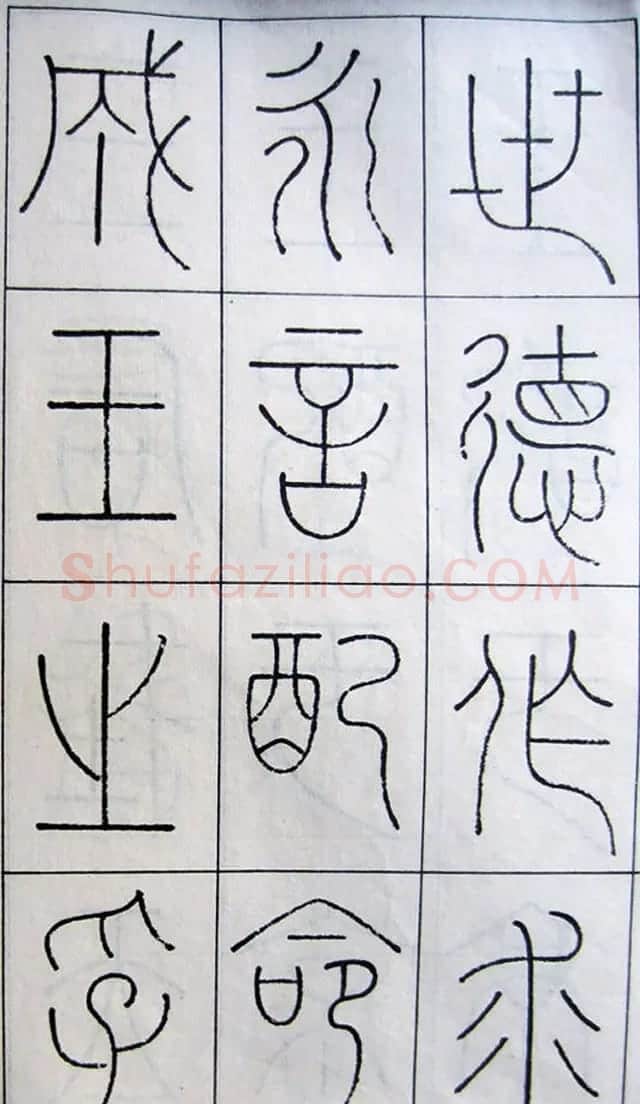 世德作求
永言配命
成王之孚
Shufaziliao.COM